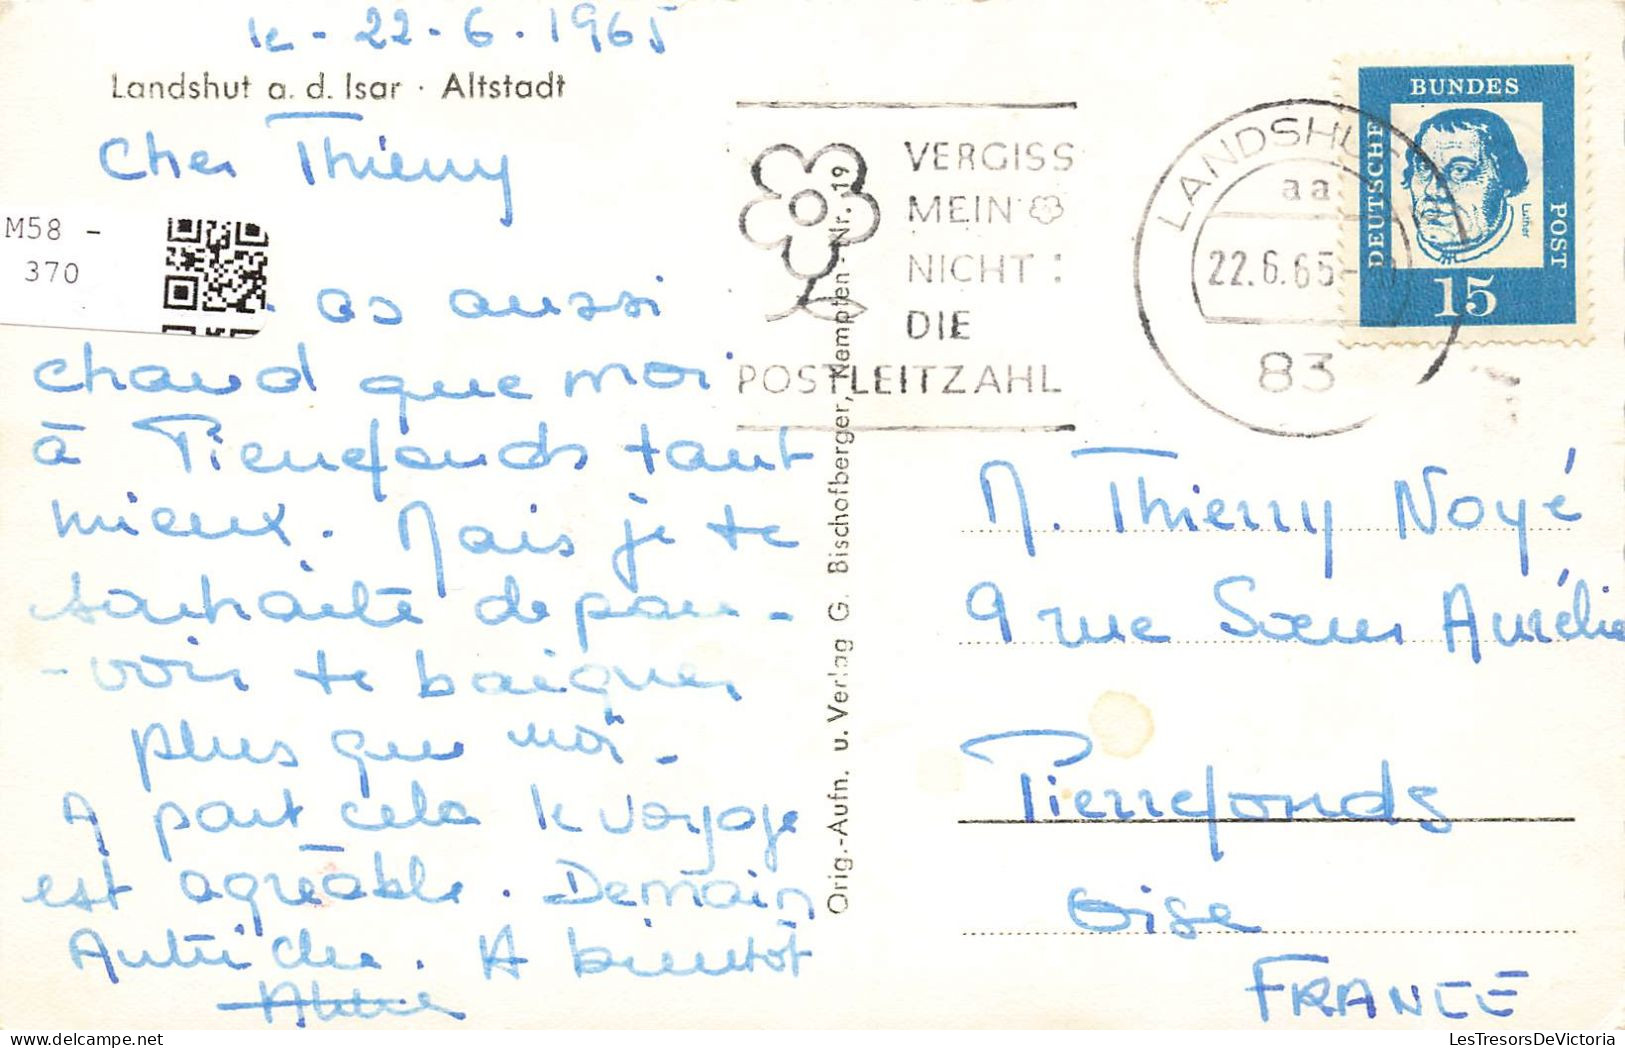 le - 22 - 6 - 1965
Landshut a. d. Isar · Altstadt
Cher Thierry
M58 -
370
as aussi
chaud que moi
à Pierrefonds tant
mieux. Mais je te
souhaite de pou-
-voir te baigner
plus que moi.
A part cela le voyage
est agréable. Demain
Autriche. A bientôt
Orig.-Aufn. u. Verlag G. Bischofberger, Kempten · Nr. 19
VERGISS
MEIN
NICHT :
DIE
POSTLEITZAHL
LANDSHUT
aa
22.6.65-
83
BUNDES
DEUTSCHE
POST
Luther
15
M. Thierry Noyé
9 rue Sœur Aurélie
Pierrefonds
Oise
FRANCE
LesTresorsDeVictoria